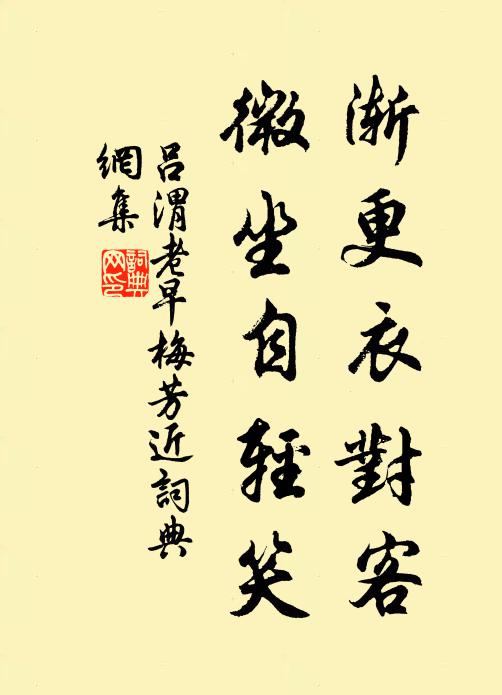 漸更衣對客
微坐自輕笑
呂渭老早梅芳近詞典
網集
詞典
网印